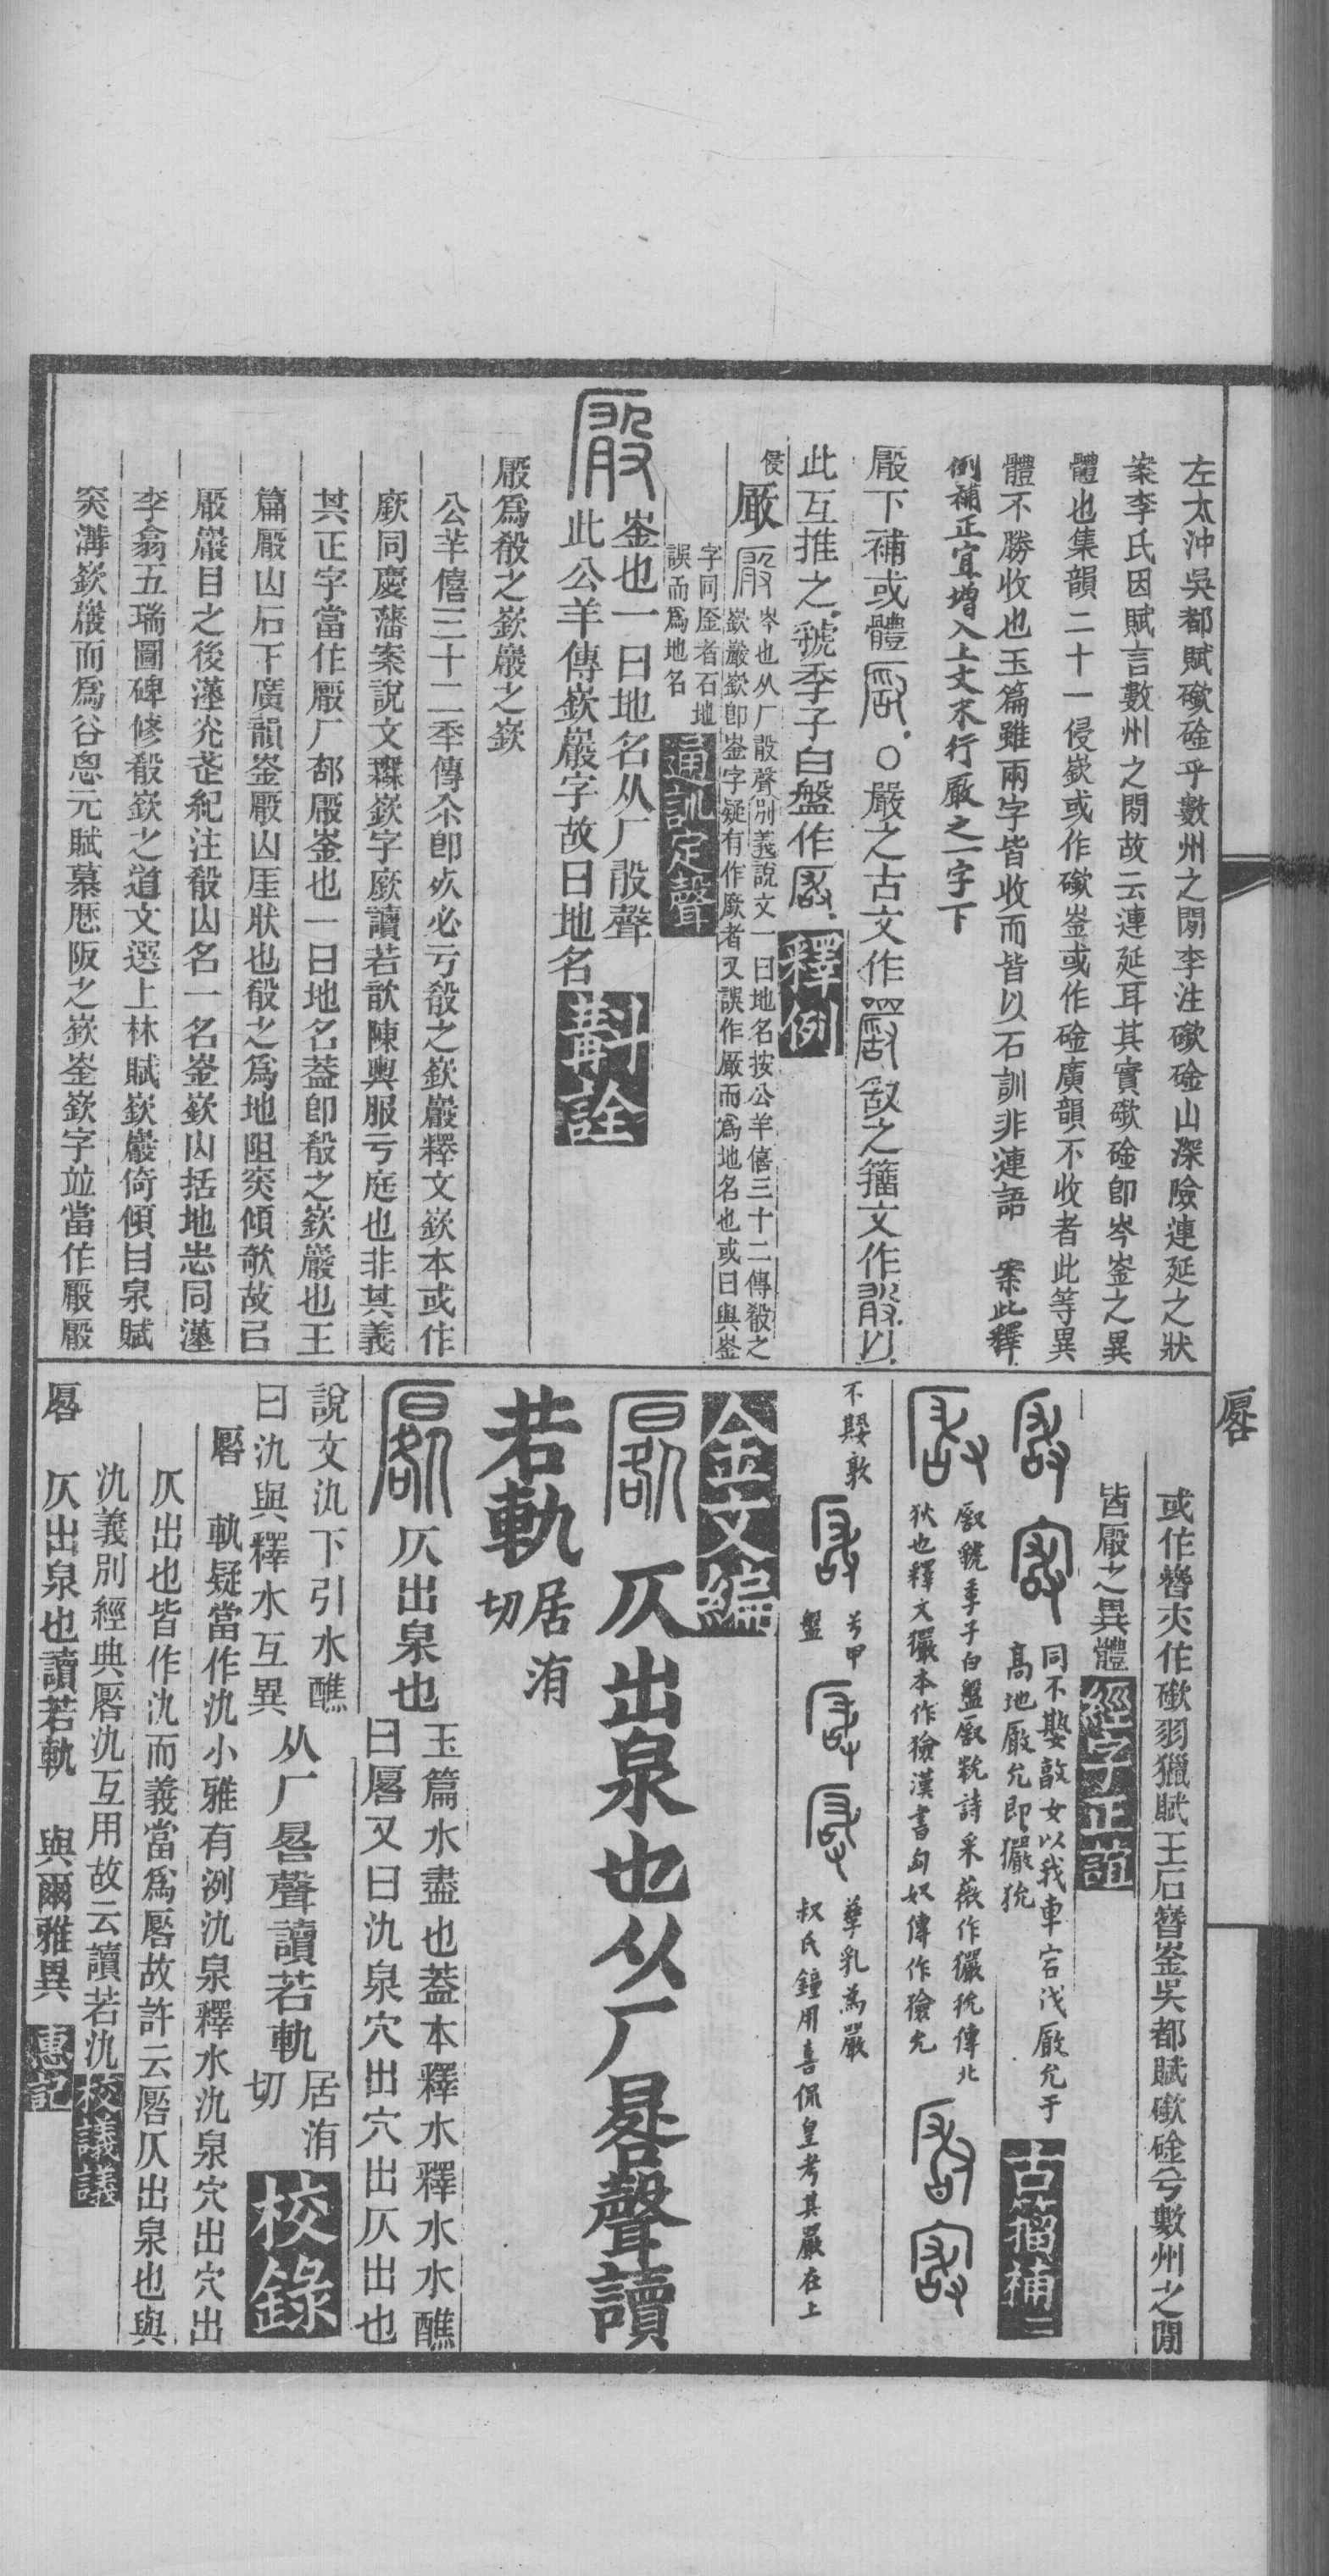 左太沖吳都賦礉碒乎數州之閒李注礉碒山深險連延之狀
案李氏因賦言數州之閒故云連延耳其實礉碒卽岑崟之異
體也集韻二十一侵嶔或作礉崟或作碒廣韻不收者此等異
體不勝收也玉篇雖兩字皆收而皆以石訓非漣語 案此釋
例補正宜增入上文末行厰之一字下
厰下補或體 〇嚴之古文作 敢之籒文作 以
此互推之虢季子白盤作 釋例
侵厰 岑也从厂𣪊聲別義說文一曰地名按公羊僖三十二傳殽之
嶔巖嶔卽崟字疑有作厥者又誤作厰而爲地名也或曰與崟
字同厜者石地
誤而爲地名 通訓定聲
崟也一曰地名从厂𣪊聲
此公羊傳嶔巖字故曰地名 斠詮
厰爲殽之嶔巖之嶔
公羊僖三十二年傳尒卽㱙必亏殽之嶔巖釋文嶔本或作
廞同慶藩案說文無嶔字廞讀若歆陳輿服亏庭也非其義
其正字當作厰厂部厰崟也一曰地名蓋卽殽之嶔巖也王
篇厰山石下廣韻崟厰山厓狀也殽之爲地阻突傾欹故㠯
厰巖目之後漢光武紀注殽山名一名崟嶔山括地志同漢
李翕五瑞圖碑修殽嶔之道文選上林賦嶔巖倚傾甘泉賦
突溝嶔巖而爲谷恖元賦慕歷阪之嶔崟嶔字竝當作厰厰
或作礹夾作礉羽獵賦王石簪崟吳都賦礉碒兮數州之閒
皆厰之異體 經字正誼
同不𡢁敦女以我車宕伐厰允于
高地厰允卽玁狁 古籒補二
厰虢季子白盤厰𥞫詩采薇作玁狁傳北
狄也釋文玁本作獫漢書匈奴傳作獫允
不𡢁敦 兮甲
盤 孳乳爲嚴
叔氏鐘用喜侃皇考其嚴在上
金文編
仄出泉也从厂晷聲讀
若軌 居洧
切
仄出泉也 玉篇水盡也蓋本釋水釋水水醮
曰厬又曰氿泉穴出穴出仄出也
說文氿下引水醮
曰氿與釋水互異 从厂晷聲讀若軌 居洧
切 校錄
厬 軌疑當作氿小雅有洌氿泉釋水氿泉穴出穴出
仄出也皆作氿而義當爲厬故許云厬仄出泉也與
氿義別經典厬氿互用故云讀若氿 校議議
厬 仄出泉也讀若軌 與爾雅異 惠記
厬